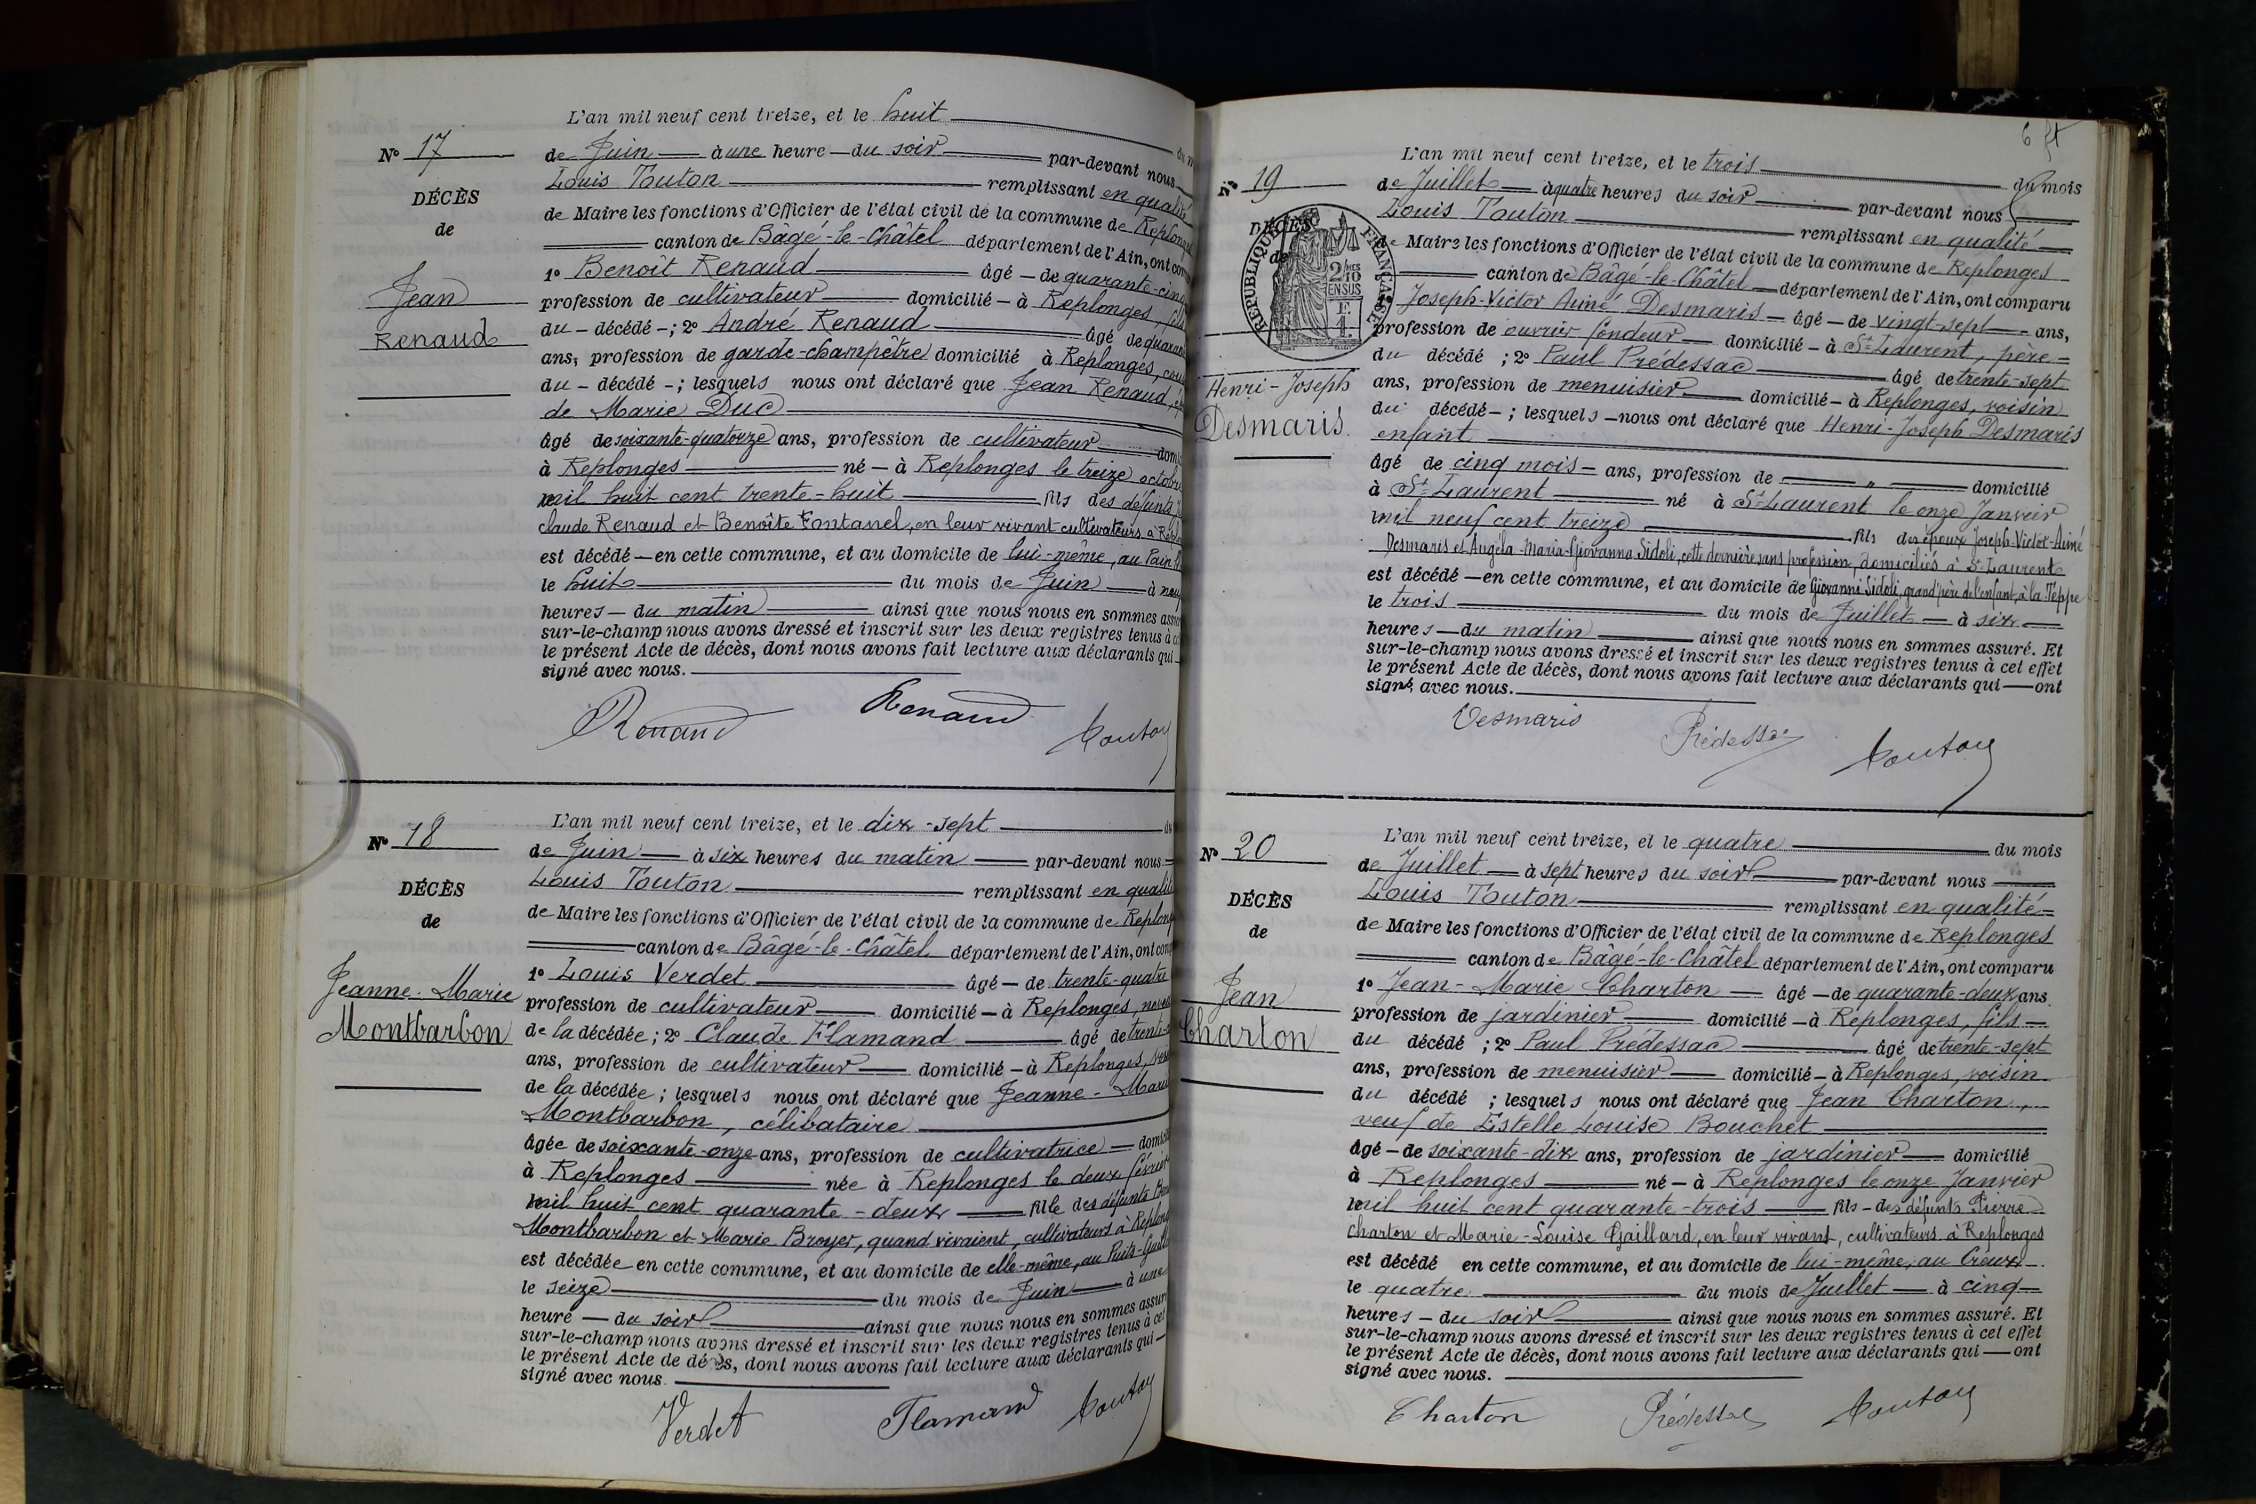 L'an mil neuf cent treize, et le huit
N° 17
de Juin à une heure du soir par-devant nous
DÉCÈS
Louis Touton remplissant en qualité
de
de Maire les fonctions d'Officier de l'état civil de la commune de Replonges
canton de Bâgé-le-Châtel département de l'Ain, ont
Jean
1° Benoît Renaud âgé de quarante-cinq
profession de cultivateur domicilié à Replonges,
Renaud
du décédé ; 2° André Renaud âgé de
ans, profession de garde-champêtre domicilié à Replonges,
du décédé ; lesquels nous ont déclaré que Jean Renaud,
de Marie Duc
âgé de soixante-quatorze ans, profession de cultivateur
à Replonges né à Replonges le treize octobre
mil huit cent trente-huit fils des défunts
claude Renaud et Benoîte Fontanel, en leur vivant cultivateurs à
est décédé en cette commune, et au domicile de lui-même, au
le huit du mois de Juin à
heures du matin ainsi que nous nous en sommes
sur-le-champ nous avons dressé et inscrit sur les deux registres tenus à
le présent Acte de décès, dont nous avons fait lecture aux déclarants qui
signé avec nous.
Renaud Renaud Touton
L'an mil neuf cent treize, et le dix-sept
N° 18
de Juin à six heures du matin par-devant nous
Louis Touton remplissant en qualité
DÉCÈS
de Maire les fonctions d'Officier de l'état civil de la commune de
de
canton de Bâgé-le-Châtel département de l'Ain, ont
1° Louis Verdet âgé de trente-quatre
Jeanne-Marie
profession de cultivateur domicilié à Replonges,
Montbarbon
de la décédée ; 2° Claude Flamand âgé de
ans, profession de cultivateur domicilié à Replonges,
de la décédée ; lesquels nous ont déclaré que Jeanne-Marie
Montbarbon, célibataire
âgée de soixante-onze ans, profession de cultivatrice
à Replonges née à Replonges le deux février
mil huit cent quarante-deux fille des défunts
Montbarbon et Marie Broyer, quand vivaient, cultivateurs à
est décédée en cette commune, et au domicile de elle-même, au
le seize du mois de Juin à une
heure du soir ainsi que nous nous en sommes
sur-le-champ nous avons dressé et inscrit sur les deux registres tenus à cet
le présent Acte de décès, dont nous avons fait lecture aux déclarants qui
signé avec nous.
Verdet Flamand Touton
L'an mil neuf cent treize, et le trois du mois
N° 19
de Juillet à quatre heures du soir par-devant nous
DÉCÈS
Louis Touton remplissant en qualité
de
RÉPUBLIQUE FRANÇAISE
de Maire les fonctions d'Officier de l'état civil de la commune de Replonges
canton de Bâgé-le-Châtel département de l'Ain, ont comparu
Joseph-Victor Aimé Desmaris âgé de vingt-sept ans,
profession de ouvrier fondeur domicilié à St-Laurent, père
du décédé ; 2° Paul Prédessac âgé de trente-sept
Henri-Joseph
ans, profession de menuisier domicilié à Replonges, voisin
Desmaris
du décédé ; lesquels nous ont déclaré que Henri-Joseph Desmaris
enfant
âgé de cinq mois ans, profession de " domicilié
à St-Laurent né à St-Laurent le onze Janvier
mil neuf cent treize fils des époux Joseph-Victor-Aimé
Desmaris et Angéla-Maria-Giovanna Sidoli, cette dernière sans profession, domiciliés à St-Laurent
est décédé en cette commune, et au domicile de Giovanni Sidoli, grand'père de l'enfant, à la Teppe
le trois du mois de Juillet à six
heures du matin ainsi que nous nous en sommes assuré. Et
sur-le-champ nous avons dressé et inscrit sur les deux registres tenus à cet effet
le présent Acte de décès, dont nous avons fait lecture aux déclarants qui ont
signé avec nous.
Desmaris Prédessac Touton
L'an mil neuf cent treize, et le quatre du mois
N° 20
de Juillet à sept heures du soir par-devant nous
Louis Touton remplissant en qualité
DÉCÈS
de Maire les fonctions d'Officier de l'état civil de la commune de Replonges
de
canton de Bâgé-le-Châtel département de l'Ain, ont comparu
Jean
1° Jean-Marie Charton âgé de quarante-deux ans
profession de jardinier domicilié à Replonges, fils
Charton
du décédé ; 2° Paul Prédessac âgé de trente-sept
ans, profession de menuisier domicilié à Replonges, voisin
du décédé ; lesquels nous ont déclaré que Jean Charton,
veuf de Estelle Louise Bouchet
âgé de soixante-dix ans, profession de jardinier domicilié
à Replonges né à Replonges le onze Janvier
mil huit cent quarante-trois fils des défunts Pierre
Charton et Marie-Louise Gaillard, en leur vivant, cultivateurs à Replonges
est décédé en cette commune, et au domicile de lui-même, au Creux
le quatre du mois de Juillet à cinq
heures du soir ainsi que nous nous en sommes assuré. Et
sur-le-champ nous avons dressé et inscrit sur les deux registres tenus à cet effet
le présent Acte de décès, dont nous avons fait lecture aux déclarants qui ont
signé avec nous.
Charton Prédessac Touton